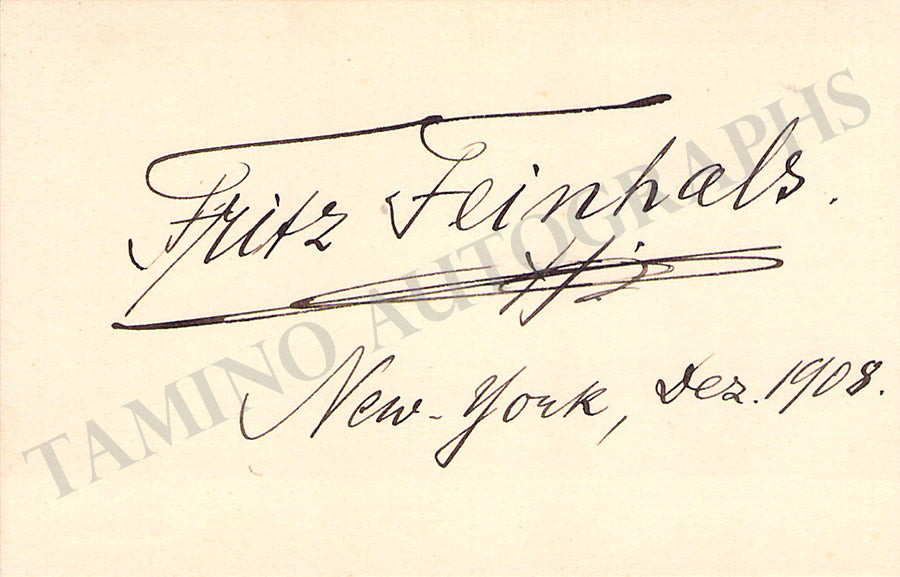 Fritz Feinhals.
New-York, Dez. 1908.
TAMINO AUTOGRAPHS